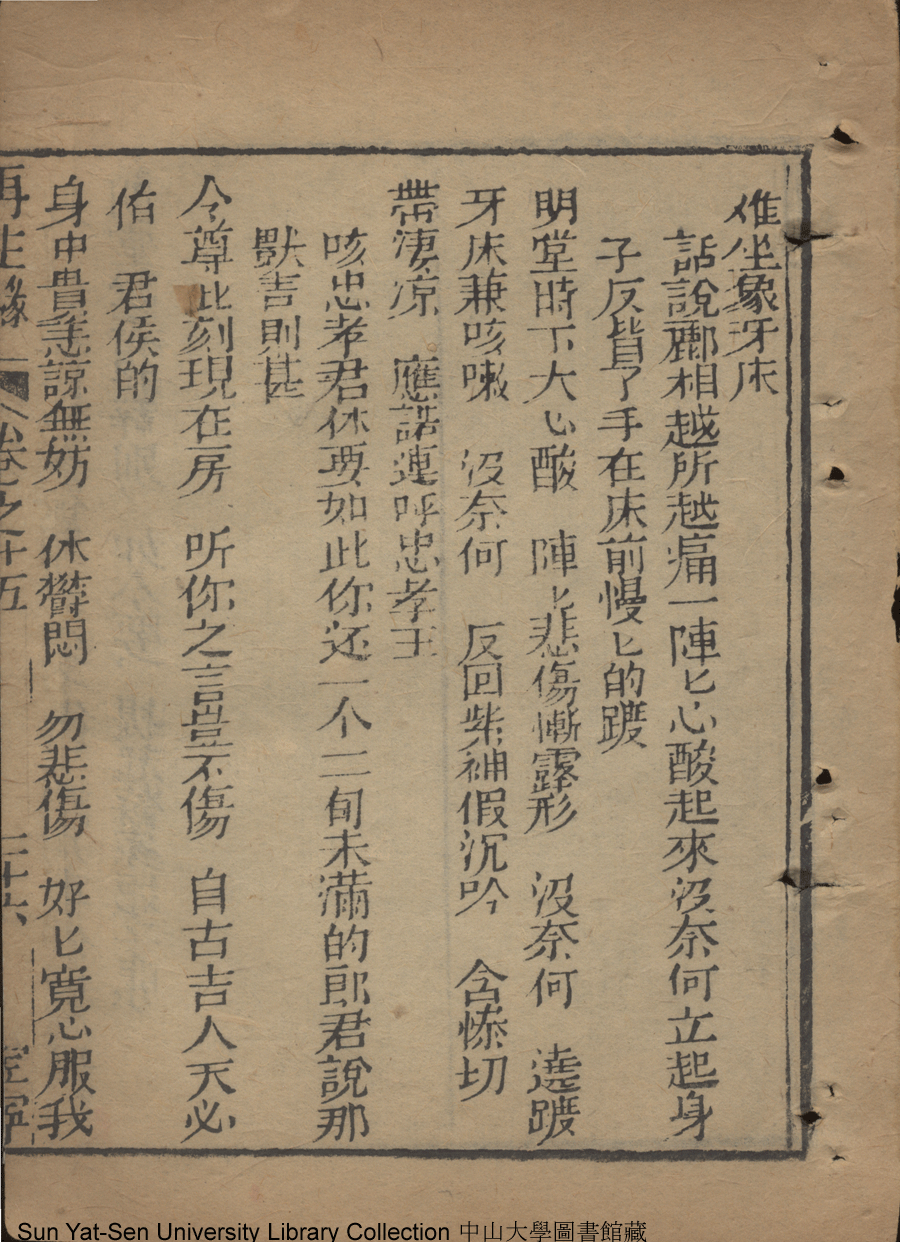 倠坐象牙床
話說酈相越所越痛一陣匕心酸起來沒奈何立起身
子反背了手在床前慢匕的踱
明堂時下大心酸　陣匕悲傷慚露形　沒奈何　遶踱
牙床兼咳嗽　沒奈何　反回紫袖假沉吟　含慘切
帶淒凉　應諾連呼忠孝王
咳忠孝君休要如此你还一个二旬未滿的郎君說那
獸言則甚
令尊此刻現在房　听你之言豈不傷　自古吉人天必
佑　君侯的
身中貴恙諒無妨　休鬱悶　勿悲傷　好匕寬心服我
再生緣　卷之十五　二十六
Sun Yat-Sen University Library Collection 中山大學圖書館藏